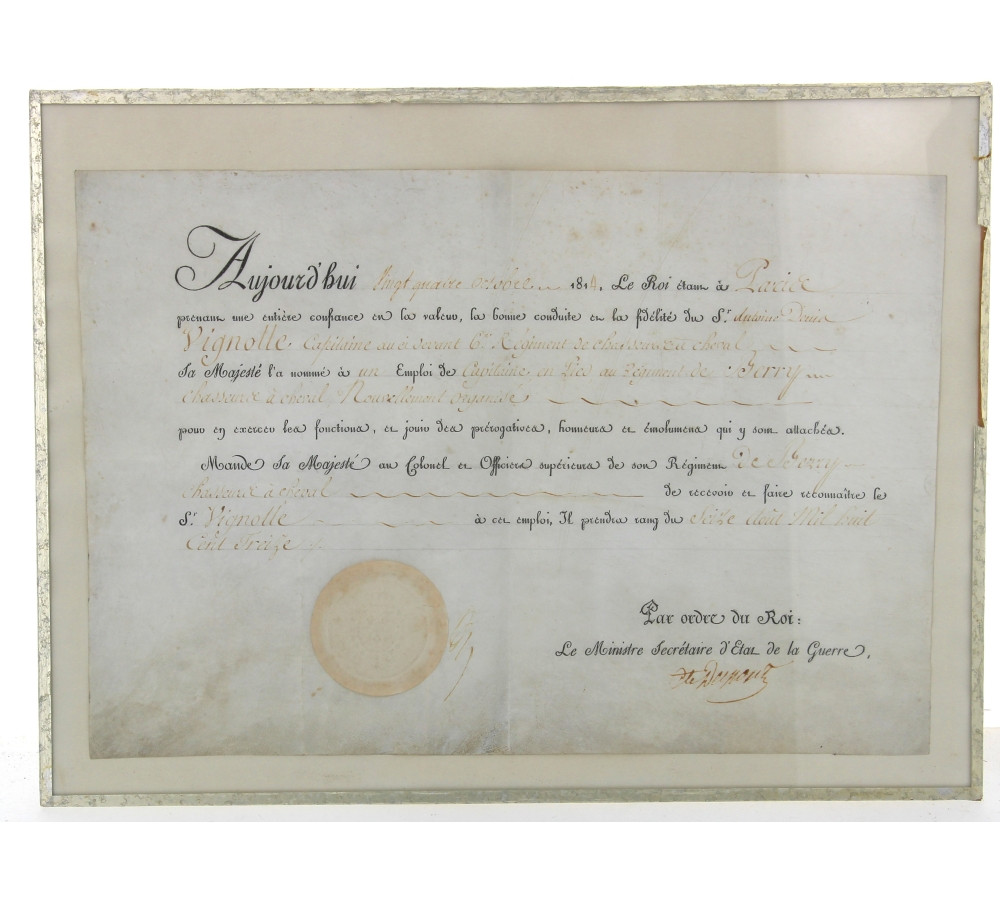 Aujourd'hui Vingt quatre Octobre 1814, Le Roi étant à Paris
prenant une entière confiance en la valeur, la bonne conduite et la fidélité du S.r Antoine Denis
Vignolle Capitaine au ci devant 6.e Régiment de chasseurs à cheval
Sa Majesté l'a nommé à un Emploi de Capitaine en Pied au Régiment de Berry
Chasseurs à cheval Nouvellement Organisé
pour en exercer les fonctions, et jouir des prérogatives, honneurs et émolumens qui y sont attachés.
Mande Sa Majesté au Colonel et Officiers supérieurs de son Régiment de Berry
Chasseurs à cheval de recevoir et faire reconnaître le
S.r Vignolle à cet emploi, Il prendra rang du Seize Août Mil huit
Cent Treize
Par ordre du Roi:
Le Ministre Secrétaire d'Etat de la Guerre,
Dupont